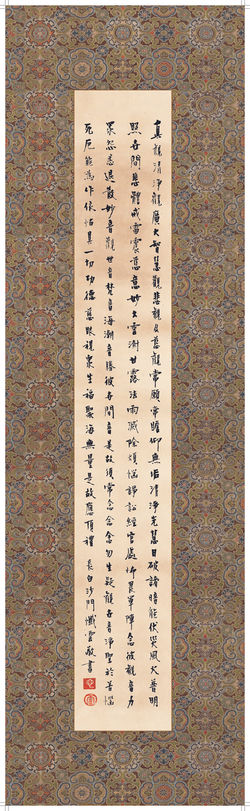 真觀清淨觀廣大智慧觀悲觀及慈觀常願常瞻仰無垢清淨光慧日破諸暗能伏災風火普明
照世間悲體戒雷震慈意妙大雲澍甘露法雨滅除煩惱諍訟經官處怖畏軍陣念彼觀音力
眾怨悉退散妙音觀世音梵音海潮音勝彼世間音是故須常念念念勿生疑觀世音淨聖於苦惱
死厄能為作依怙具一切功德慈眼視眾生福聚海無量是故應頂禮 長白沙門懺雲敬書